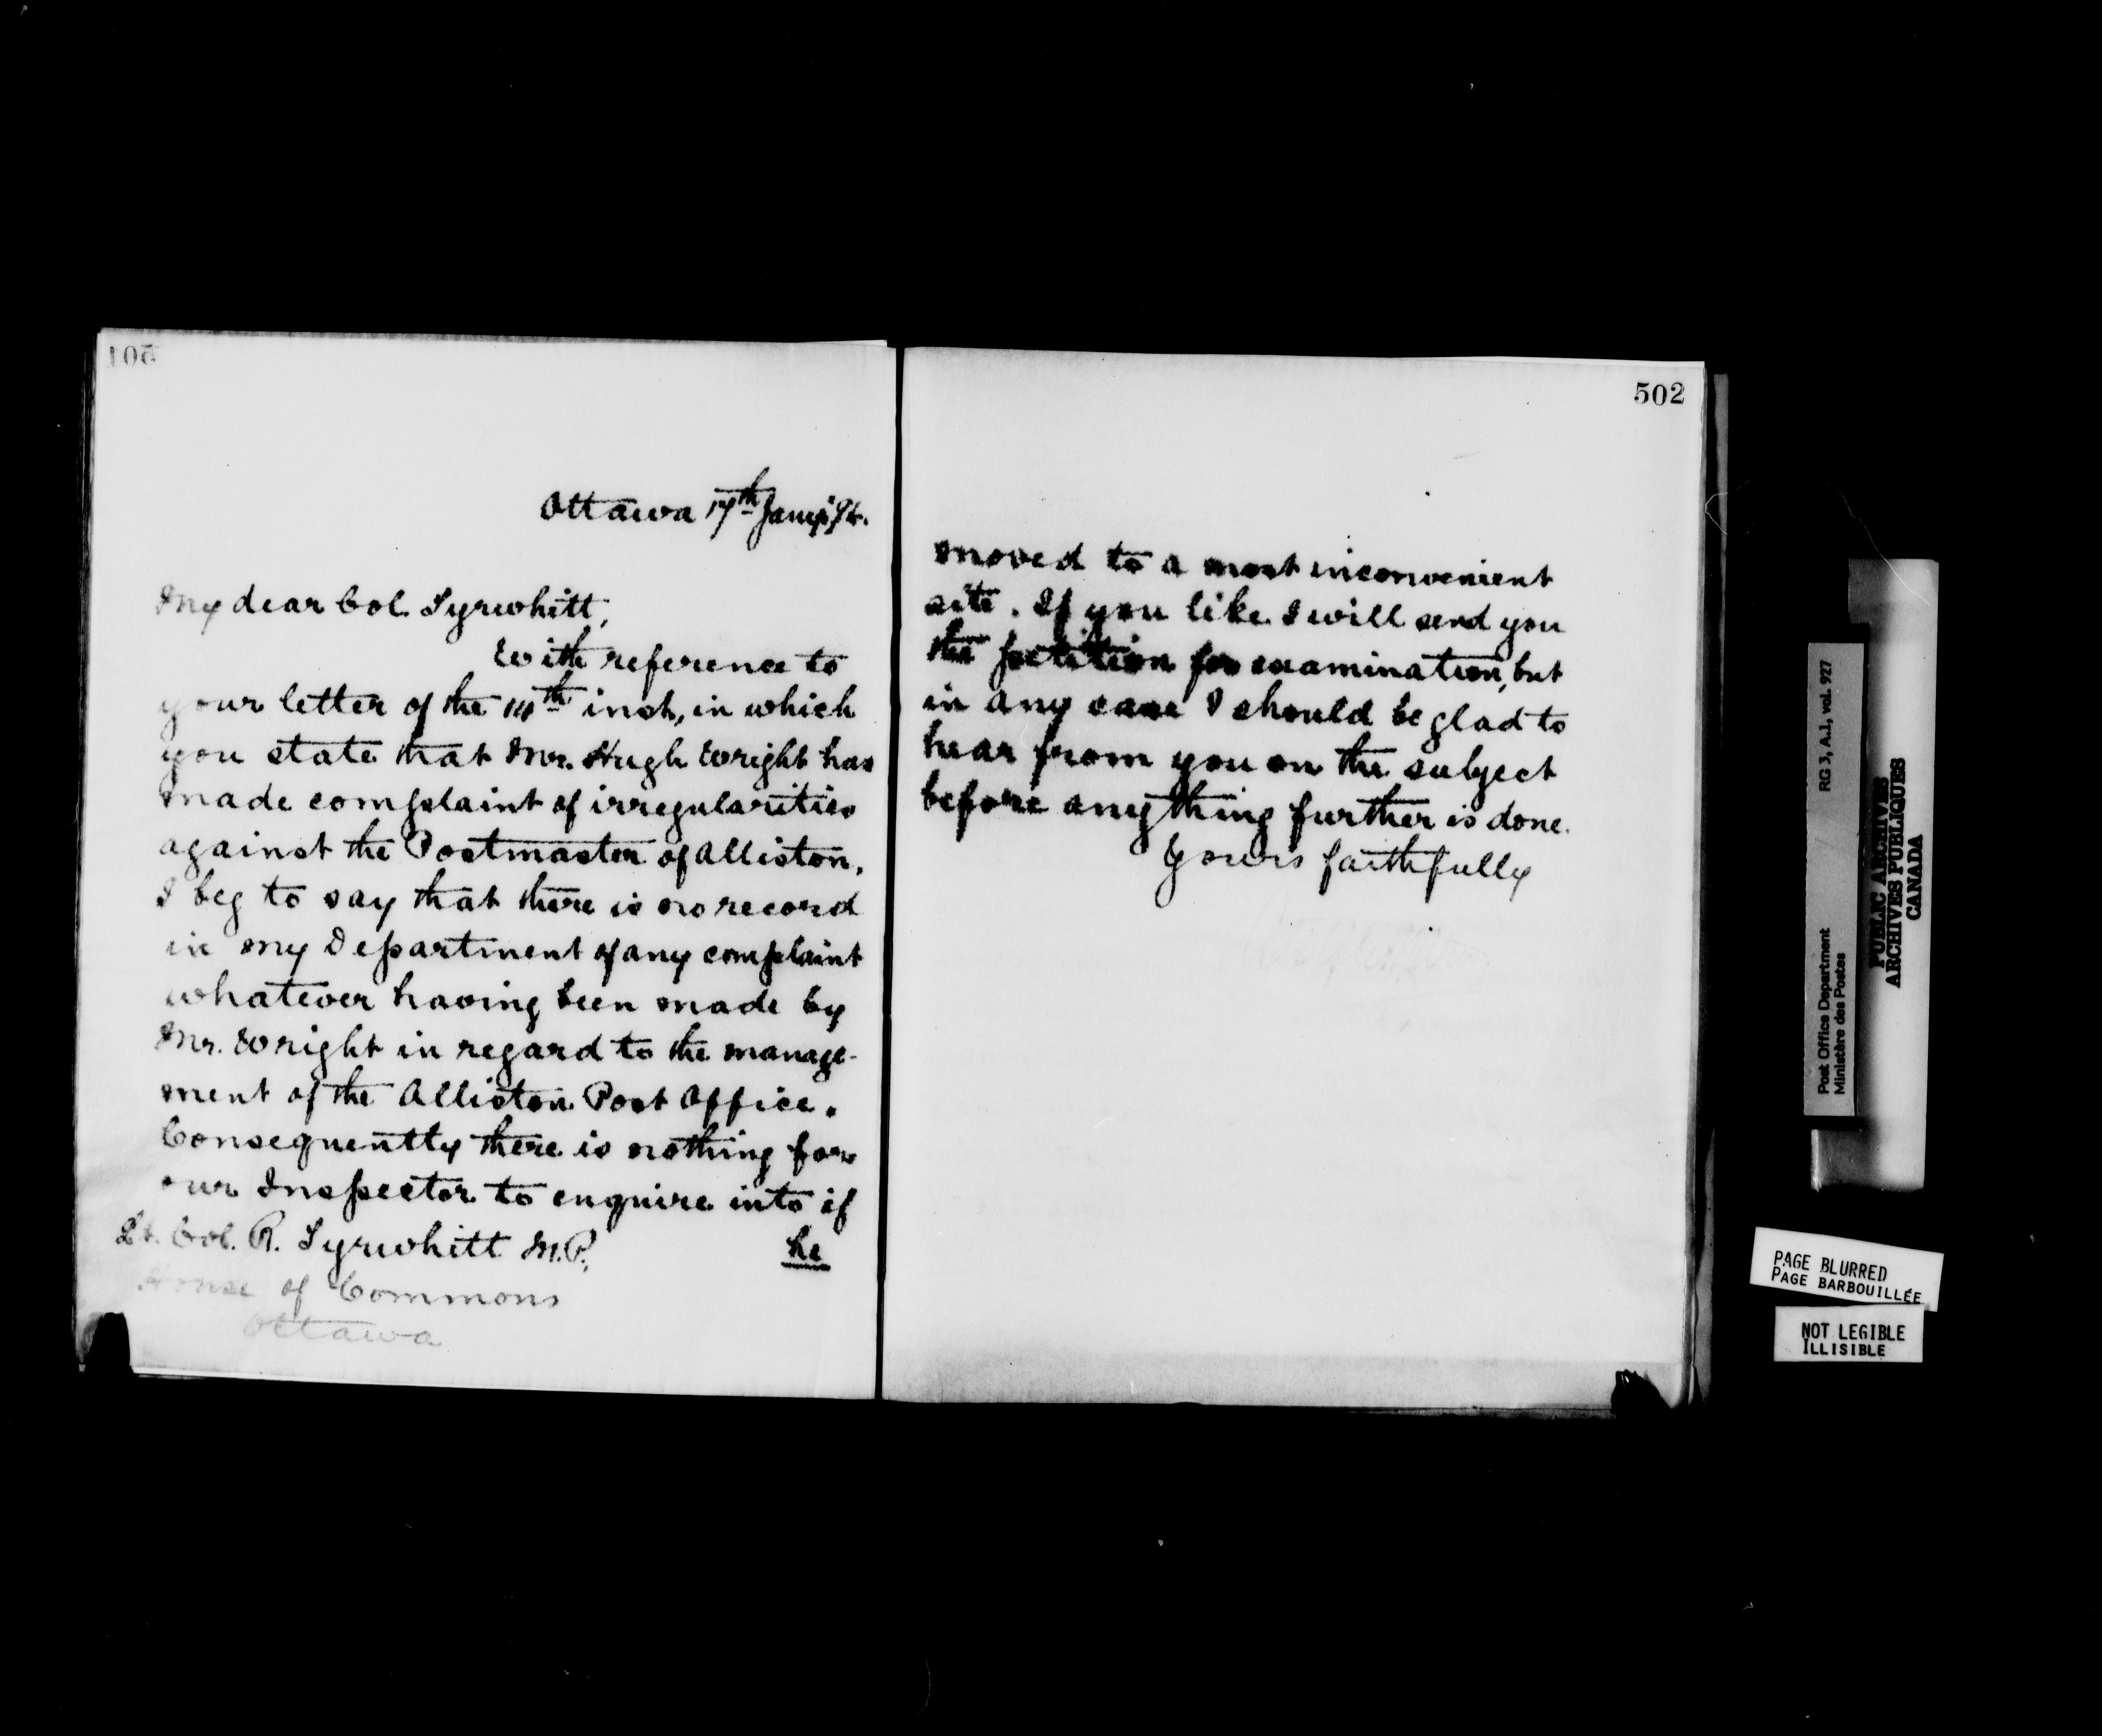 Ottawa 17th Jany '94.
My dear Col. Tyrwhitt,
With reference to
your letter of the 14th inst, in which
you state that Mr. Hugh Wright has
made complaint of irregularities
against the Postmaster of Alliston,
I beg to say that there is no record
in my Department of any complaint
whatever having been made by
Mr. Wright in regard to the manage-
ment of the Alliston Post Office.
Consequently there is nothing for
our Inspector to enquire into if
he
Lt. Col. R. Tyrwhitt M.P.
House of Commons
Ottawa
502
moved to a most inconvenient
site. If you like I will send you
the petition for examination, but
in any case I should be glad to
hear from you on the subject
before anything further is done.
Yours faithfully
RG 3, A.1, vol. 927
Post Office Department
Ministère des Postes
PUBLIC ARCHIVES
ARCHIVES PUBLIQUES
CANADA
PAGE BLURRED
PAGE BARBOUILLÉE
NOT LEGIBLE
ILLISIBLE